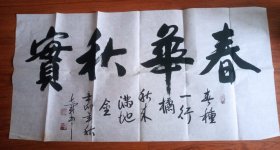 春華秋實
春種
一行
橘
秋来
滿地
金